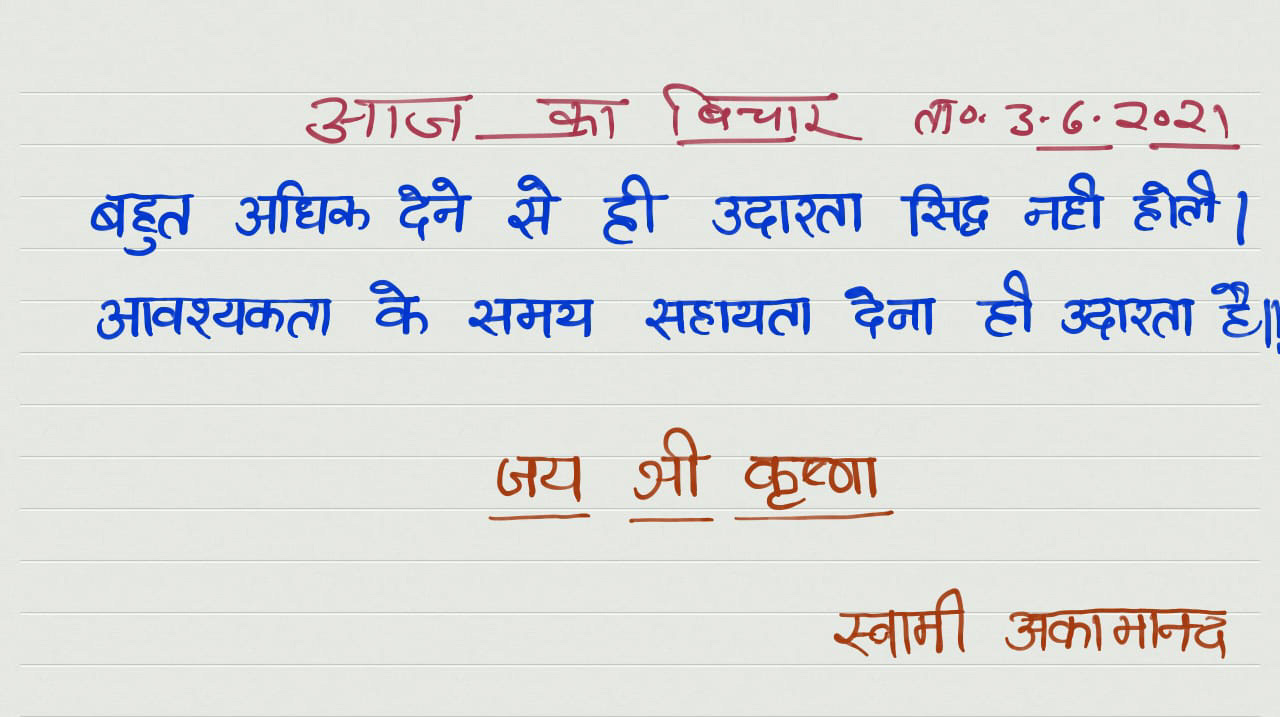 आज का बिचार ता०. 3.6.2021
बहुत अधिक देने से ही उदारता सिद्ध नही होती।
आवश्यकता के समय सहायता देना ही उदारता है।।
जय श्री कृष्णा
स्वामी अकामानन्द